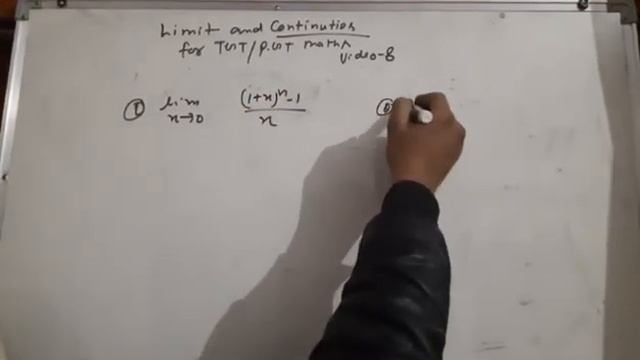 Limit and Continuties
for TGT/P.GT maths
video-8
① lim x→0 ((1+x)^n-1)/x